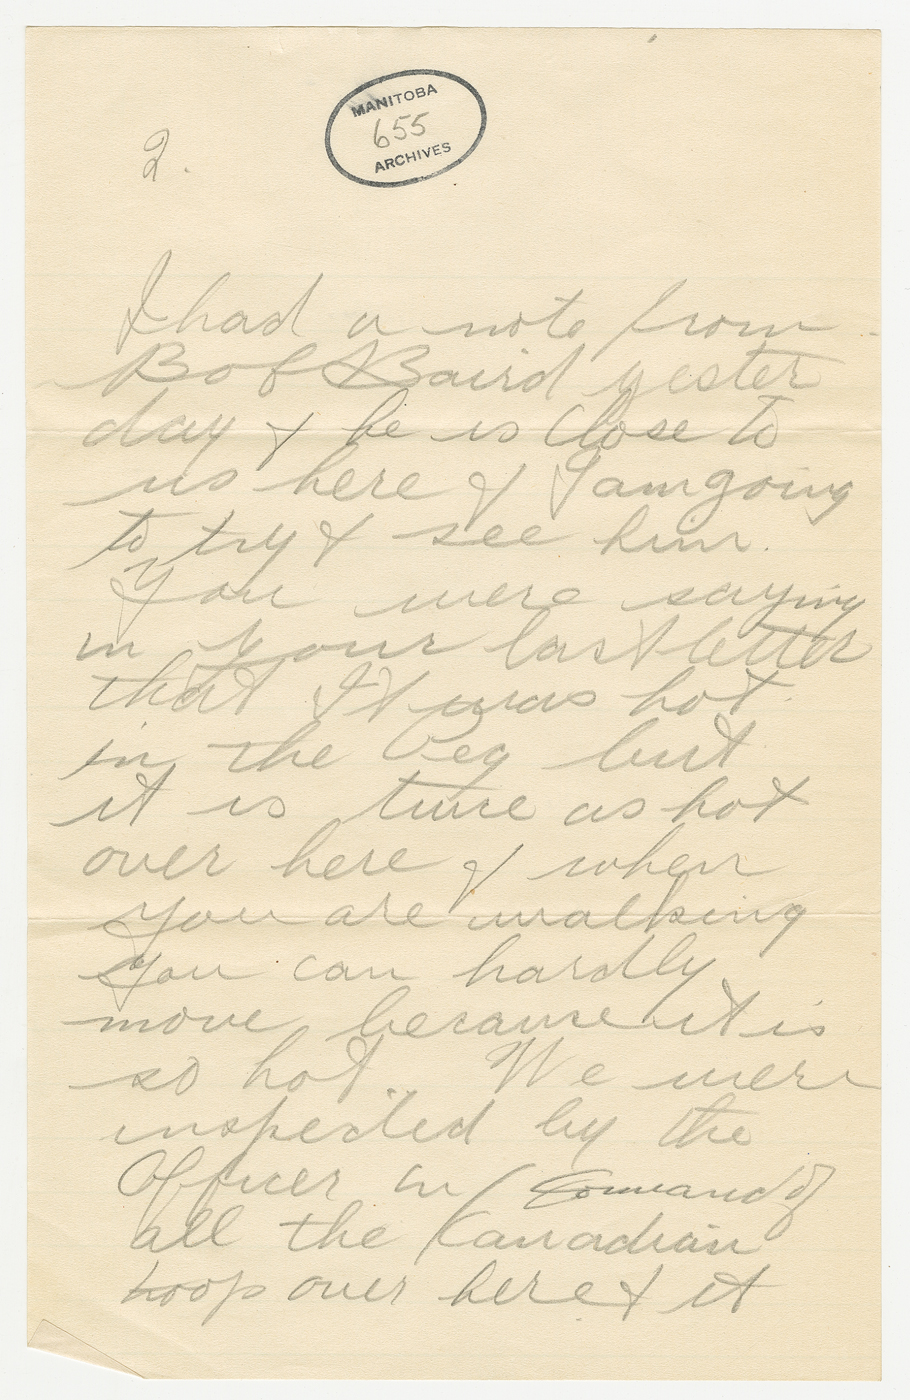 MANITOBA
655
ARCHIVES
2.
I had a note from
Bob Baird yester
day & he is close to
us here & I am going
to try & see him.
You were saying
in your last letter
that It was hot
in the Peg but
it is twice as hot
over here & when
you are walking
you can hardly
move because it is
so hot. We were
inspected by the
Officer in Command of
all the Canadian
troop over here & it